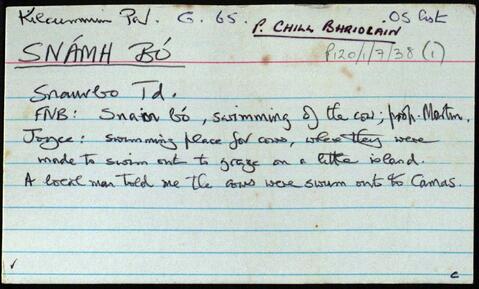 Kilcummin Par. G. 65. P. CHILL BHRIOCAIN OS list
SNÁMH BÓ P120/1/7/38 (1)
Snauvbo Td.
FNB: Snain bó, swimming of the cow; prop. Martin.
Joyce: swimming place for cows, where they were
made to swim out to graze on a little island.
A local man told me the cows were swum out to Camas.
✓ C